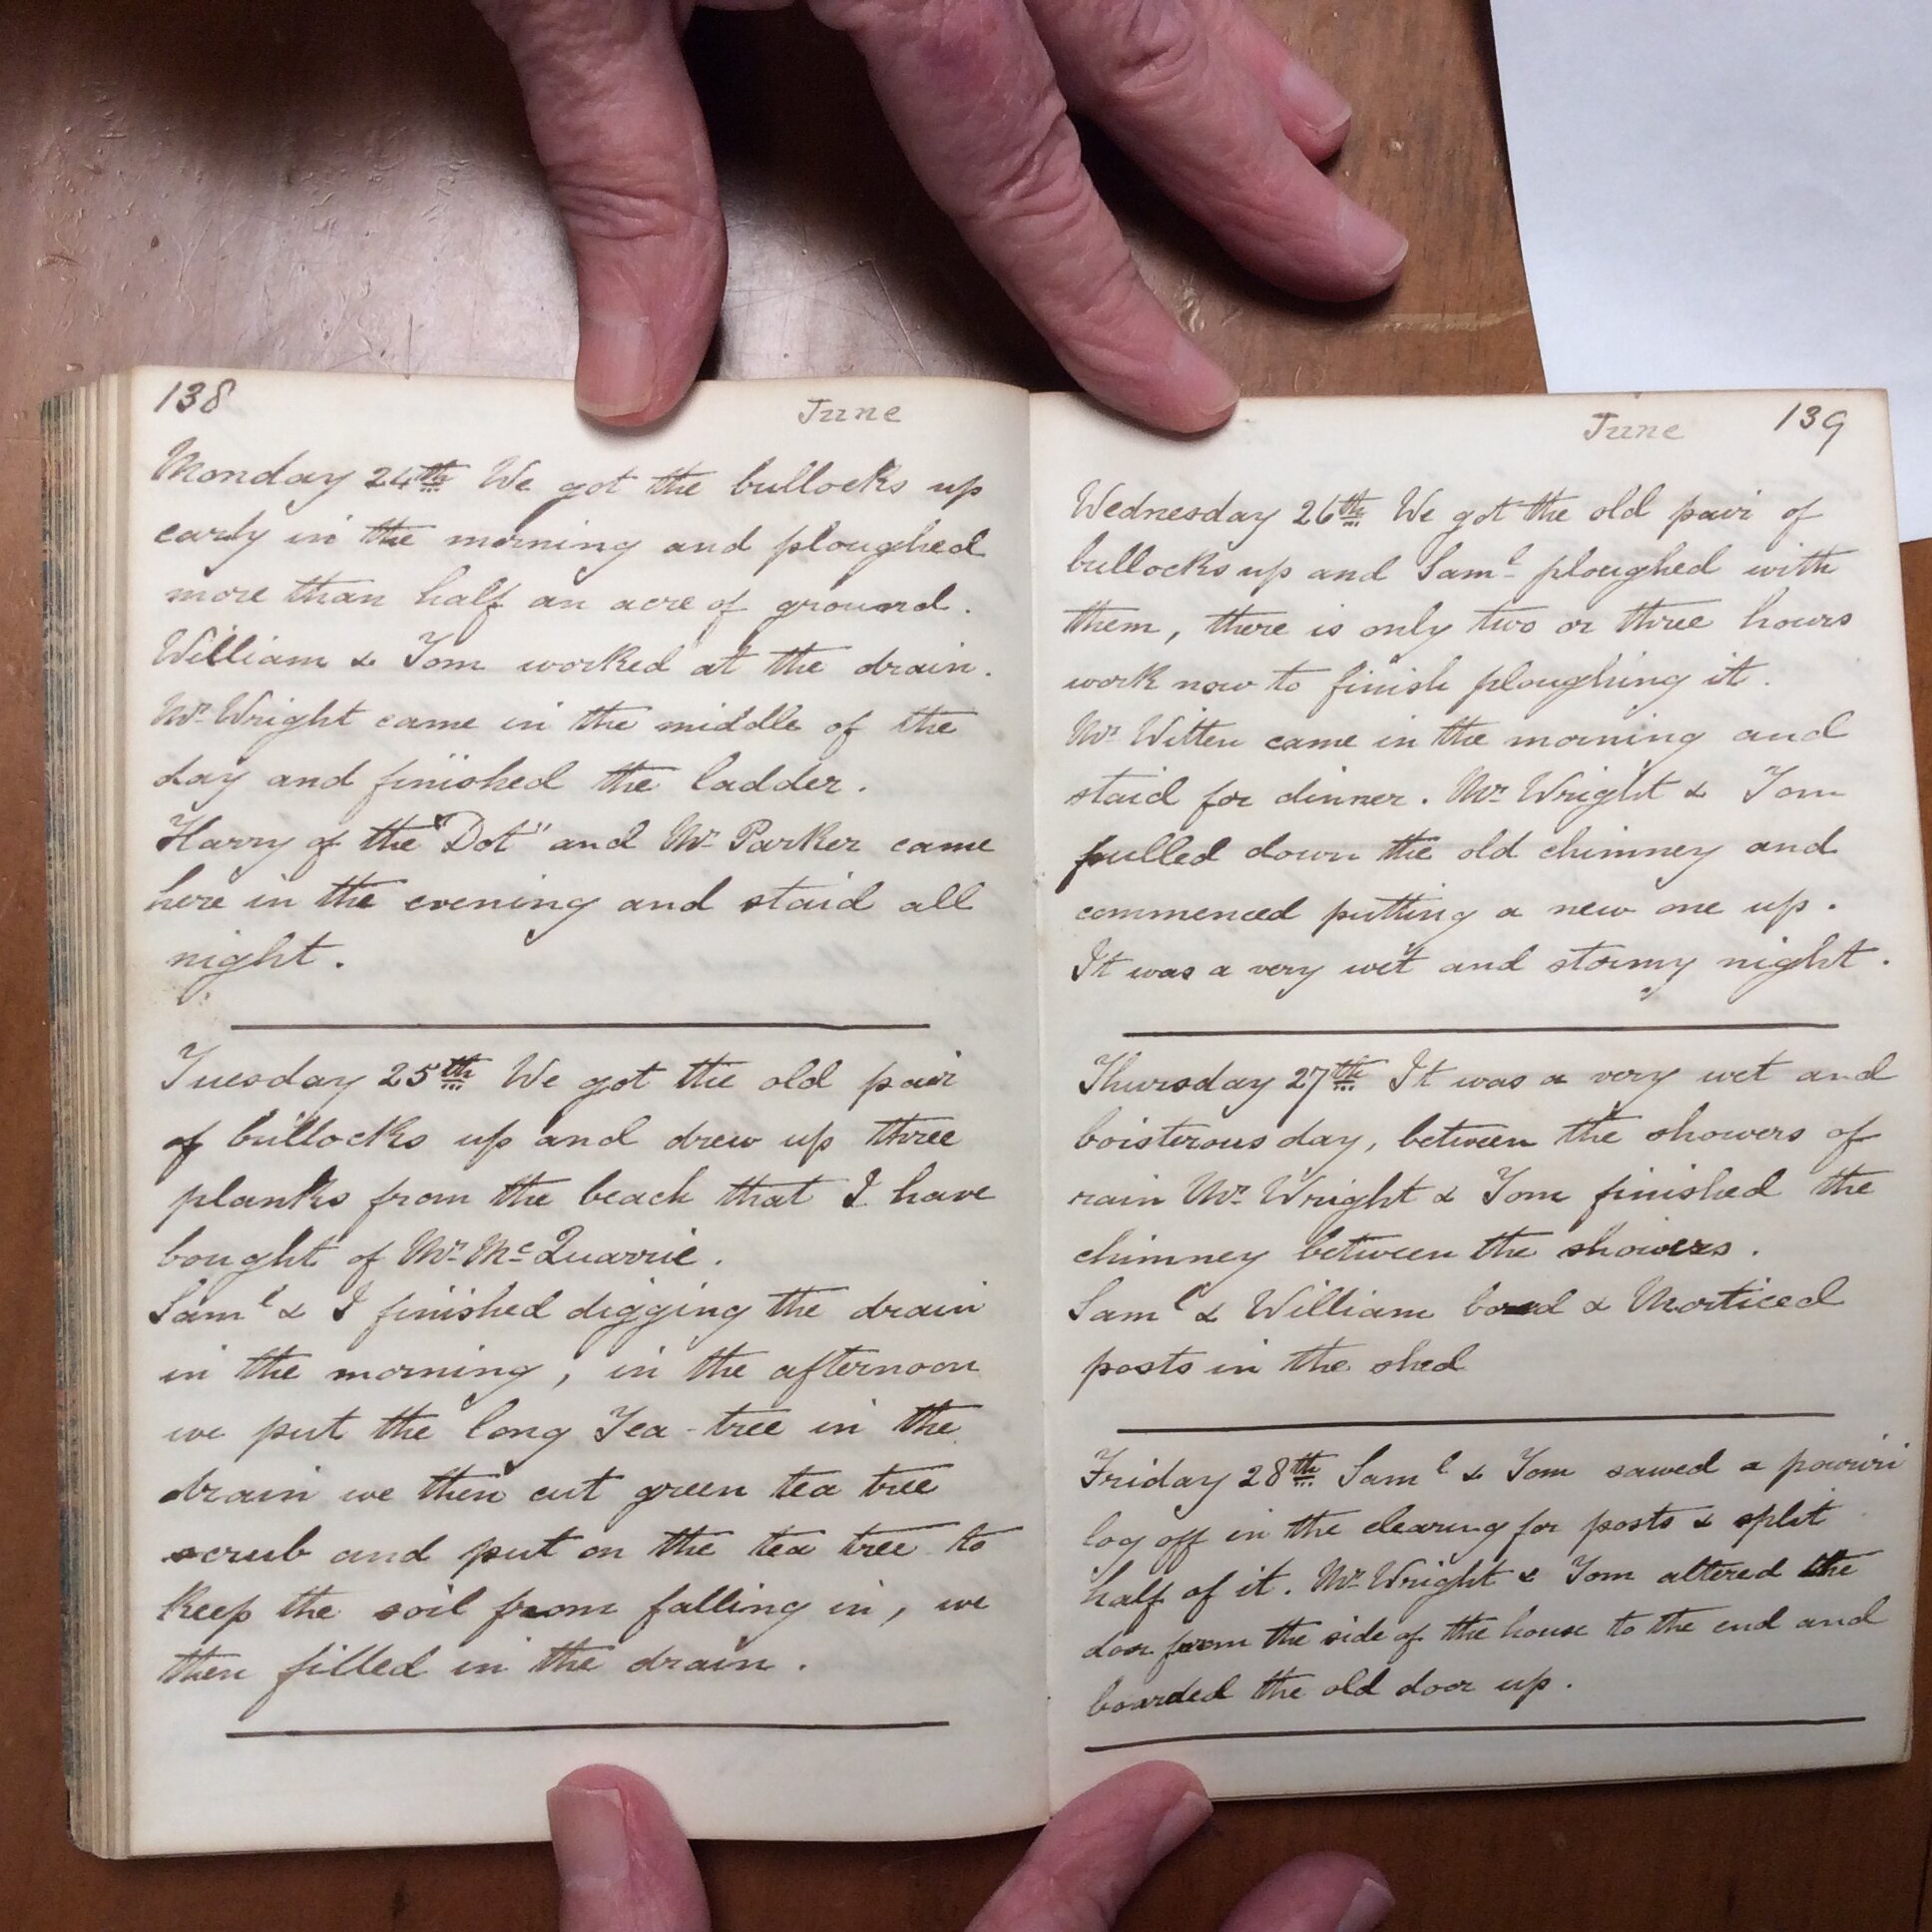 138
June
Monday 24th We got the bullocks up
early in the morning and ploughed
more than half an acre of ground.
William & Tom worked at the drain.
Mr. Wright came in the middle of the
day and finished the ladder.
Harry of the "Dot" and Mr. Parker came
here in the evening and staid all
night.
Tuesday 25th We got the old pair
of bullocks up and drew up three
planks from the beach that I have
bought of Mr. McQuarrie.
Saml & I finished digging the drain
in the morning, in the afternoon
we put the long Tea-tree in the
drain we then cut green tea tree
scrub and put on the tea tree to
keep the soil from falling in, we
then filled in the drain.
June
139
Wednesday 26th We got the old pair of
bullocks up and Saml ploughed with
them, there is only two or three hours
work now to finish ploughing it.
Mr. Witten came in the morning and
staid for dinner. Mr. Wright & Tom
pulled down the old chimney and
commenced putting a new one up.
It was a very wet and stormy night.
Thursday 27th It was a very wet and
boisterous day, between the showers of
rain Mr. Wright & Tom finished the
chimney between the showers.
Saml & William bored & Morticed
posts in the shed
Friday 28th Saml & Tom sawed a pouriri
log off in the clearing for posts & split
half of it. Mr. Wright & Tom altered the
door from the side of the house to the end and
boarded the old door up.